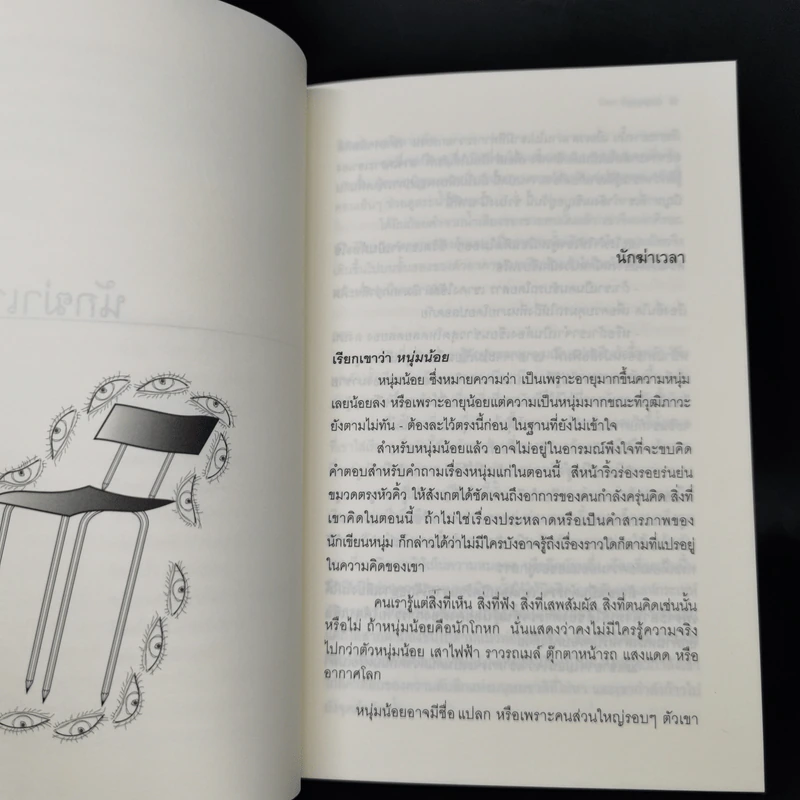 นักฆ่าเวลา
เรียกเขาว่า หนุ่มน้อย
หนุ่มน้อย ซึ่งหมายความว่า เป็นเพราะอายุมากขึ้นความหนุ่ม
เลยน้อยลง หรือเพราะอายุน้อยแต่ความเป็นหนุ่มมากขณะที่วุฒิภาวะ
ยังตามไม่ทัน - ต้องละไว้ตรงนี้ก่อน ในฐานที่ยังไม่เข้าใจ
สำหรับหนุ่มน้อยแล้ว อาจไม่อยู่ในอารมณ์พึงใจที่จะขบคิด
คำตอบสำหรับคำถามเรื่องหนุ่มแก่ในตอนนี้ สีหน้าริ้วร่องรอยร่นย่น
ขมวดตรงหัวคิ้ว ให้สังเกตได้ชัดเจนถึงอาการของคนกำลังครุ่นคิด สิ่งที่
เขาคิดในตอนนี้ ถ้าไม่ใช่เรื่องประหลาดหรือเป็นคำสารภาพของ
นักเขียนหนุ่ม ก็กล่าวได้ว่าไม่มีใครบังอาจรู้ถึงเรื่องราวใดก็ตามที่แปรอยู่
ในความคิดของเขา
คนเรารู้แต่สิ่งที่เห็น สิ่งที่ฟัง สิ่งที่เสพสัมผัส สิ่งที่ตนคิดเช่นนั้น
หรือไม่ ถ้าหนุ่มน้อยคือนักโกหก นั่นแสดงว่าคงไม่มีใครรู้ความจริง
ไปกว่าตัวหนุ่มน้อย เสาไฟฟ้า ราวรถเมล์ ตุ๊กตาหน้ารถ แสงแดด หรือ
อากาศโลก
หนุ่มน้อยอาจมีชื่อ แปลก หรือเพราะคนส่วนใหญ่รอบๆ ตัวเขา